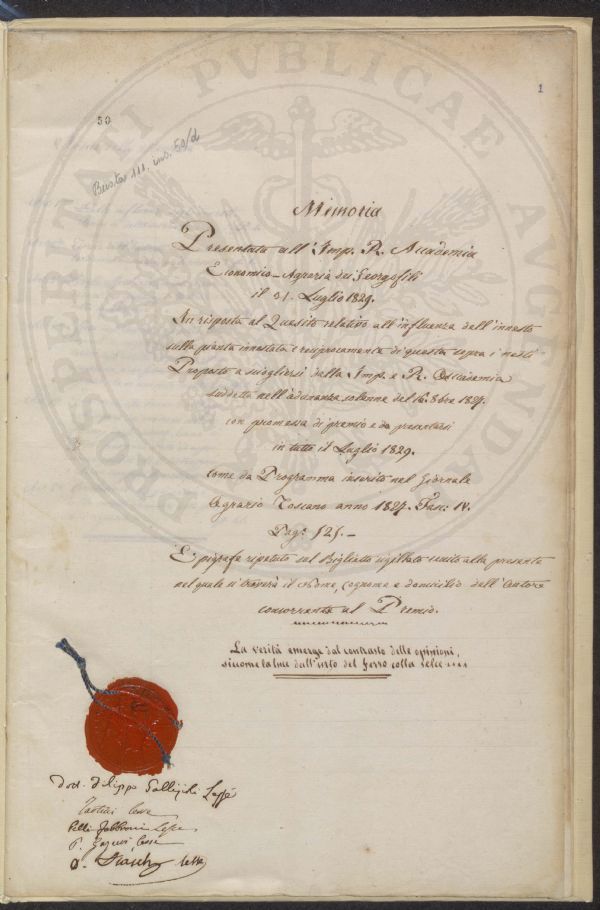 PROSPERITATI PVBLICAE AVGENDAE
1
50
Busta 111. ins. 50/d
Memoria
Presentata all'Imp. R. Accademia
Economico-Agraria dei Georgofili
il 31. Luglio 1829.
In risposta al Quesito relativo all'influenza dell'innesto
sulla pianta innestata e reciprocamente di questa sopra i nesti
Proposto a sciogliersi dalla Imp. e R. Accademia
suddetta nell'adunanza solenne del 8bre 1827.
con promessa di premio e da presentarsi
in tutto il Luglio 1829.
come da Programma inserito nel Giornale
Agrario Toscano anno 1827. Fasc: IV.
Pag.
Epigrafe ripetuta sul Biglietto sigillato unito alla presente
nel quale si troverà il Nome, Cognome e domicilio dell'Autore
concorrente al Premio.
La verità emerge dal contrasto delle opinioni,
siccome la luce dall'urto del ferro colla selce
Dott. Filippo